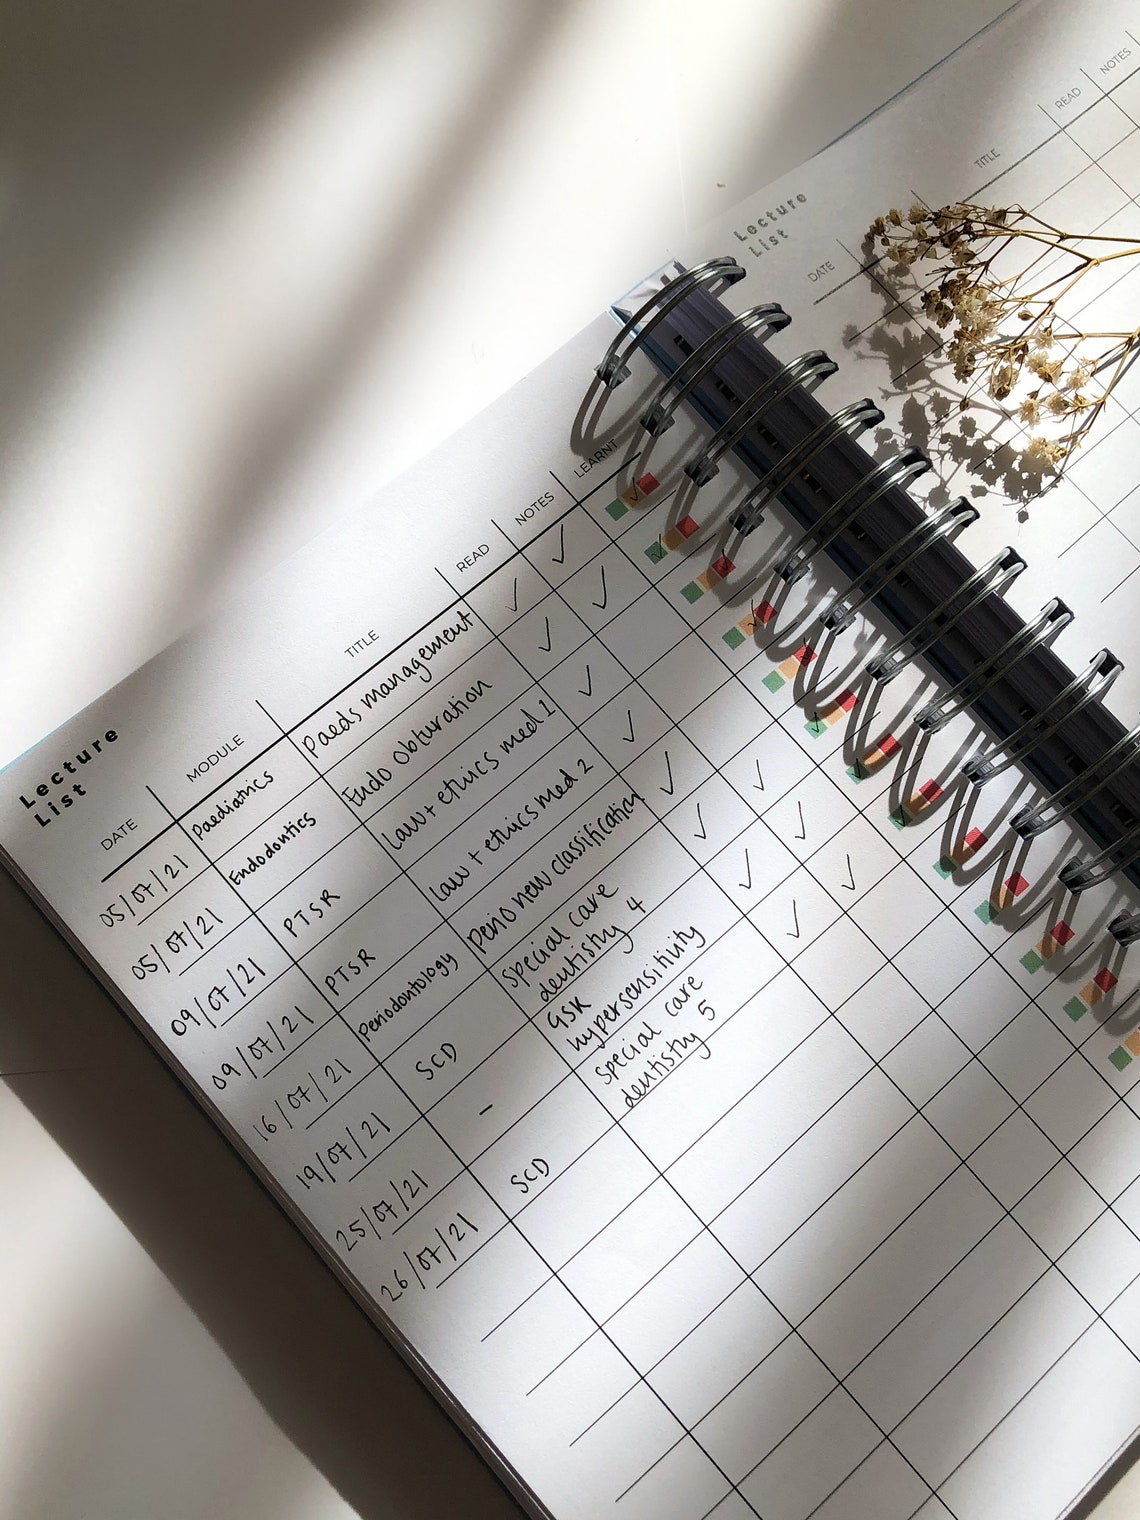 Lecture
List
DATE MODULE TITLE READ NOTES LEARNT
05/07/21 Paediatrics Paeds management ✓ ✓ ✓
05/07/21 Endodontics Endo Obturation ✓ ✓ ✓
09/07/21 PTSR Law + ethics med 1 ✓
09/07/21 PTSR Law + ethics med 2 ✓ ✓
16/07/21 Periodontology Perio new classification ✓
19/07/21 SCD Special care
dentistry 4 ✓ ✓ ✓
25/07/21 - GSK
hypersensitivity ✓ ✓ ✓
26/07/21 SCD Special care
dentistry 5 ✓ ✓ ✓
Lecture
List
DATE TITLE READ NOTES